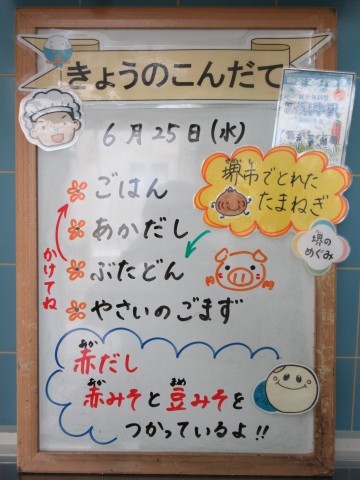 きょうのこんだて
6月25日(水)
堺市でとれた
たまねぎ
ごはん
あかだし
ぶたどん
やさいのごまず
かけてね
堺の
めぐみ
赤だし
赤みそと豆みそを
つかっているよ!!